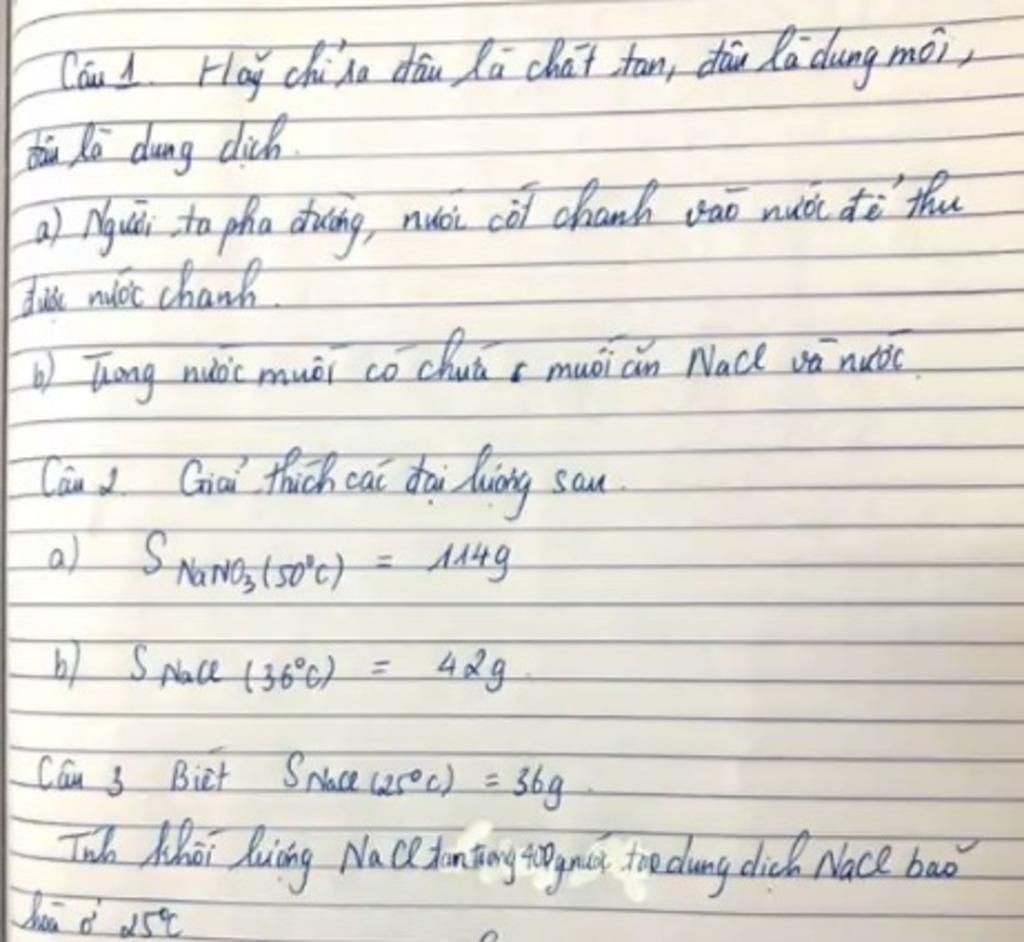 Câu 1. Hãy chỉ ra đâu là chất tan, đâu là dung môi,
đâu là dung dịch.
a) Người ta pha đường, nước cốt chanh vào nước để thu
được nước chanh.
b) Trong nước muối có chứa muối ăn NaCl và nước.
Câu 2. Giải thích các đại lượng sau.
a) S NaNO₃ (50°C) = 114g
b) S NaCl (36°C) = 42g.
Câu 3 Biết S NaCl (25°C) = 36g.
Tính khối lượng NaCl tan trong 400g nước tạo dung dịch NaCl bão
hoà ở 25°C